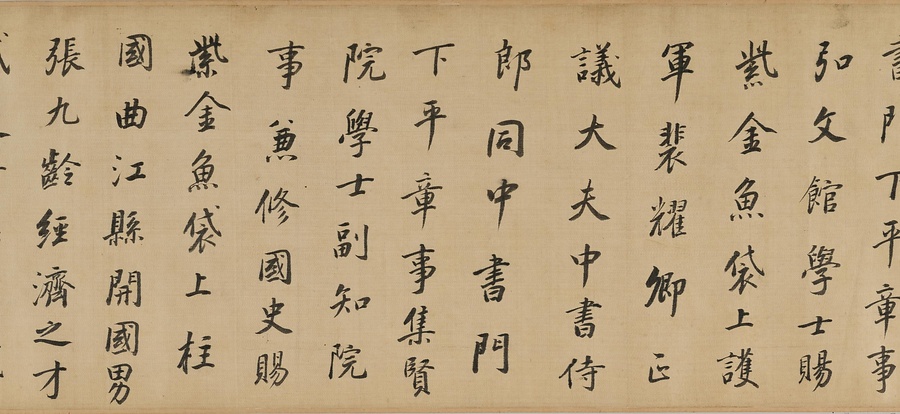 下平章事
弘文館學士賜
紫金魚袋上護
軍裴耀卿正
議大夫中書侍
郎同中書門
下平章事集賢
院學士副知院
事兼修國史賜
紫金魚袋上柱
國曲江縣開國男
張九齡經濟之才